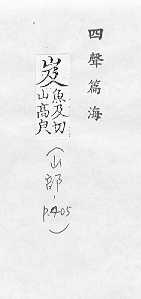 四聲篇海
岌
魚及切
山高皃
(山部,p.405)